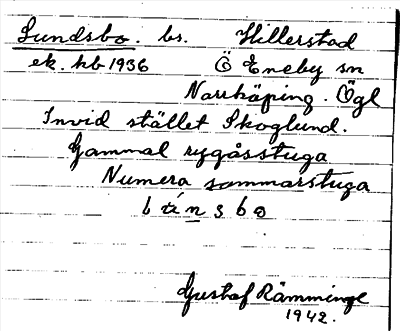 Lundsbo. bs. Hillerstad
ek. kb 1936 Ö Eneby sn
Norrköping. Ögl
Invid stället Skoglund.
Gammal ryggåsstuga
Numera sommarstuga
Gustaf Rämminge
1942.